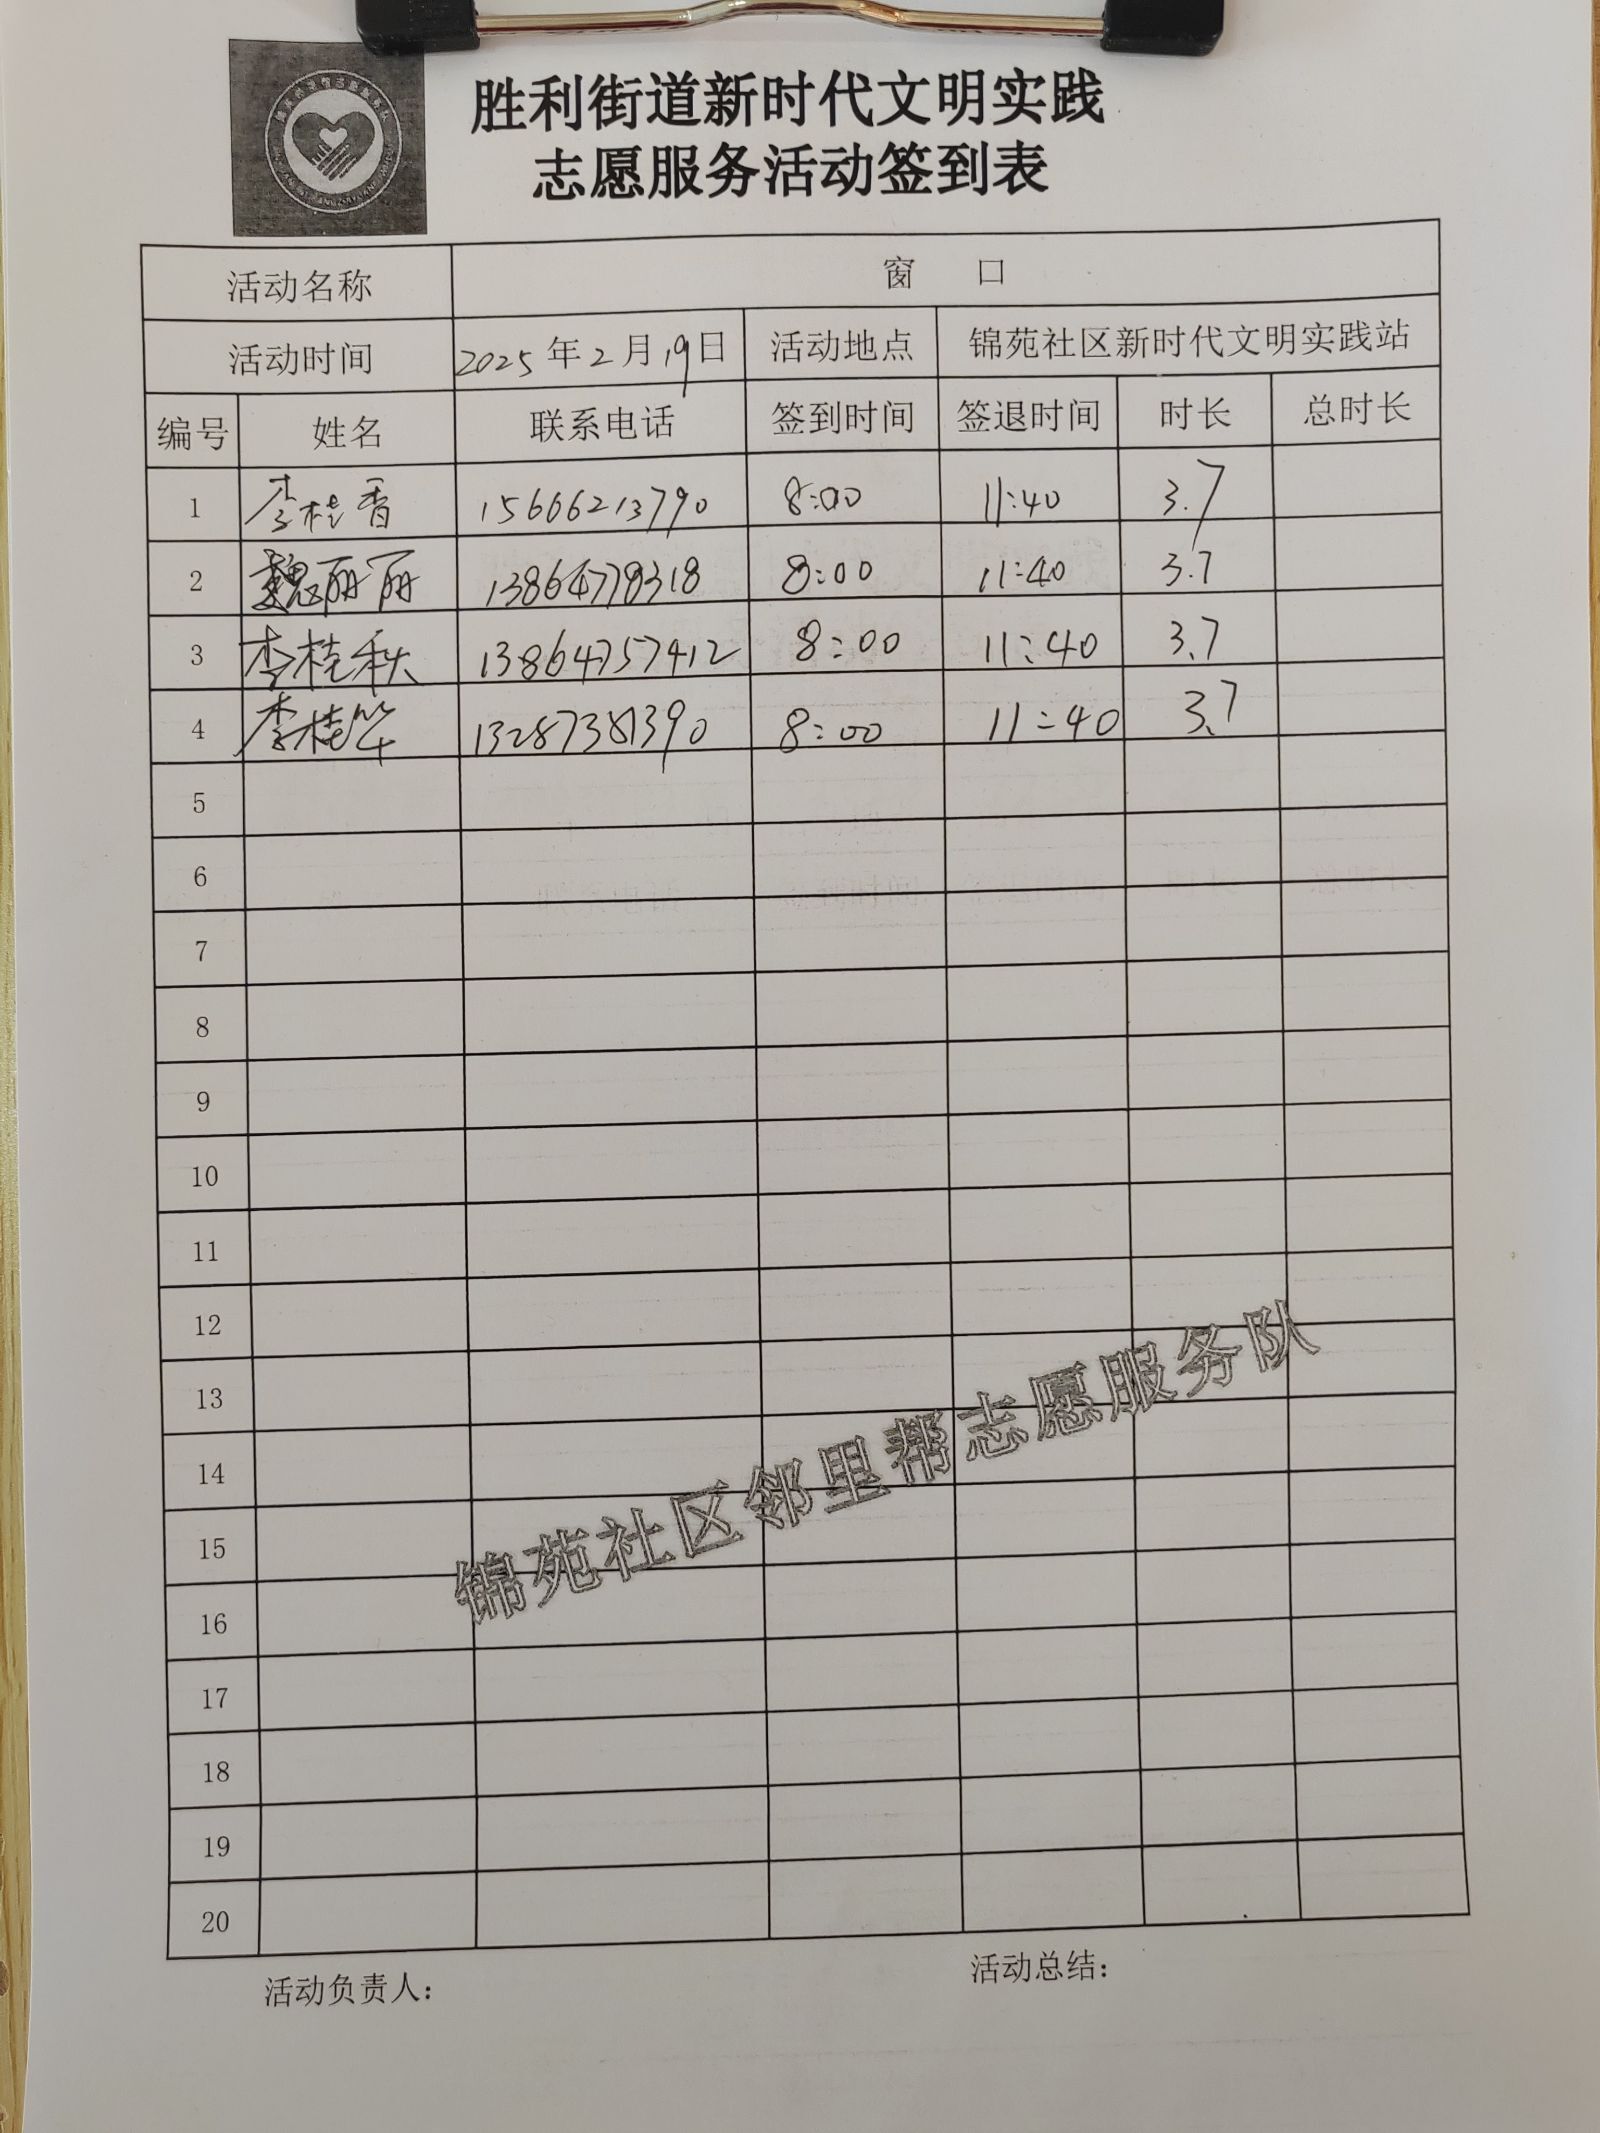 胜利街道新时代文明实践
志愿服务活动签到表
活动名称 窗 口
活动时间 2025年2月19日 活动地点 锦苑社区新时代文明实践站
编号 姓名 联系电话 签到时间 签退时间 时长 总时长
1 李桂香 15606213790 8:00 11:40 3.7
2 魏丽丽 13864778318 8:00 11:40 3.7
3 李桂秋 13864757412 8:00 11:40 3.7
4 李桂华 13287381390 8:00 11:40 3.7
5
6
7
8
9
10
11
12
13
14
15
16
17
18
19
20
锦苑社区邻里帮志愿服务队
活动负责人： 活动总结：